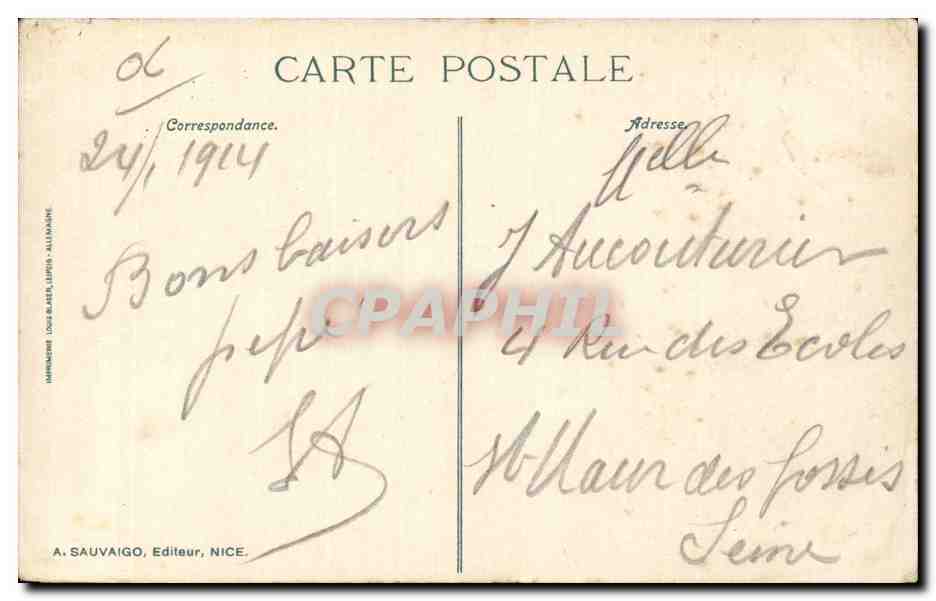 CARTE POSTALE
Correspondance.
24/1 1914
Bons baisers
pépé
Adresse
Melle
J Aucouturier
4 Rue des Ecoles
St Maur des Fossés
Seine
CPAPHIL
IMPRIMERIE LOUIS BLASER, LEIPZIG - ALLEMAGNE
A. SAUVAIGO, Editeur, NICE.